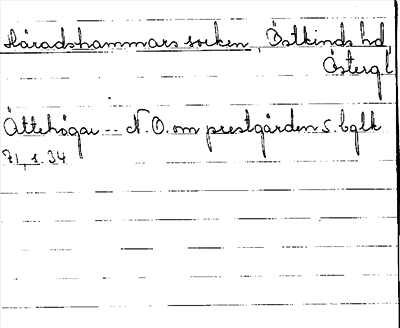 Häradshammars socken Östkinds hd
Östergl
Ättehögar -- N.O. om prestgården s. bglk
71, s. 34